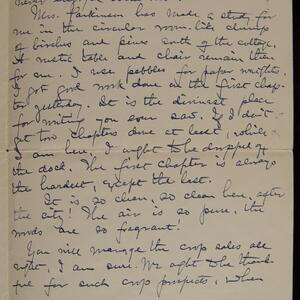 Mrs. Parkinson has made a study for
me in the circular room-like clump
of birches and pines south of the cottage.
A metal table and chair remain there
for me. I use pebbles for paper weights.
I got good work done on the first chap-
ter yesterday. It is the divinest place
for writing you ever saw. If I don't
get two chapters done at least, while
I am here, I ought to be dropped off
the dock. The first chapter is always
the hardest, except the last.
It is so clean, so clean here, after
the city! The air is so pure, the
woods are so fragrant!
You will manage the crop sales all
right, I am sure. We ought to be thank-
ful for such crop prospects, when